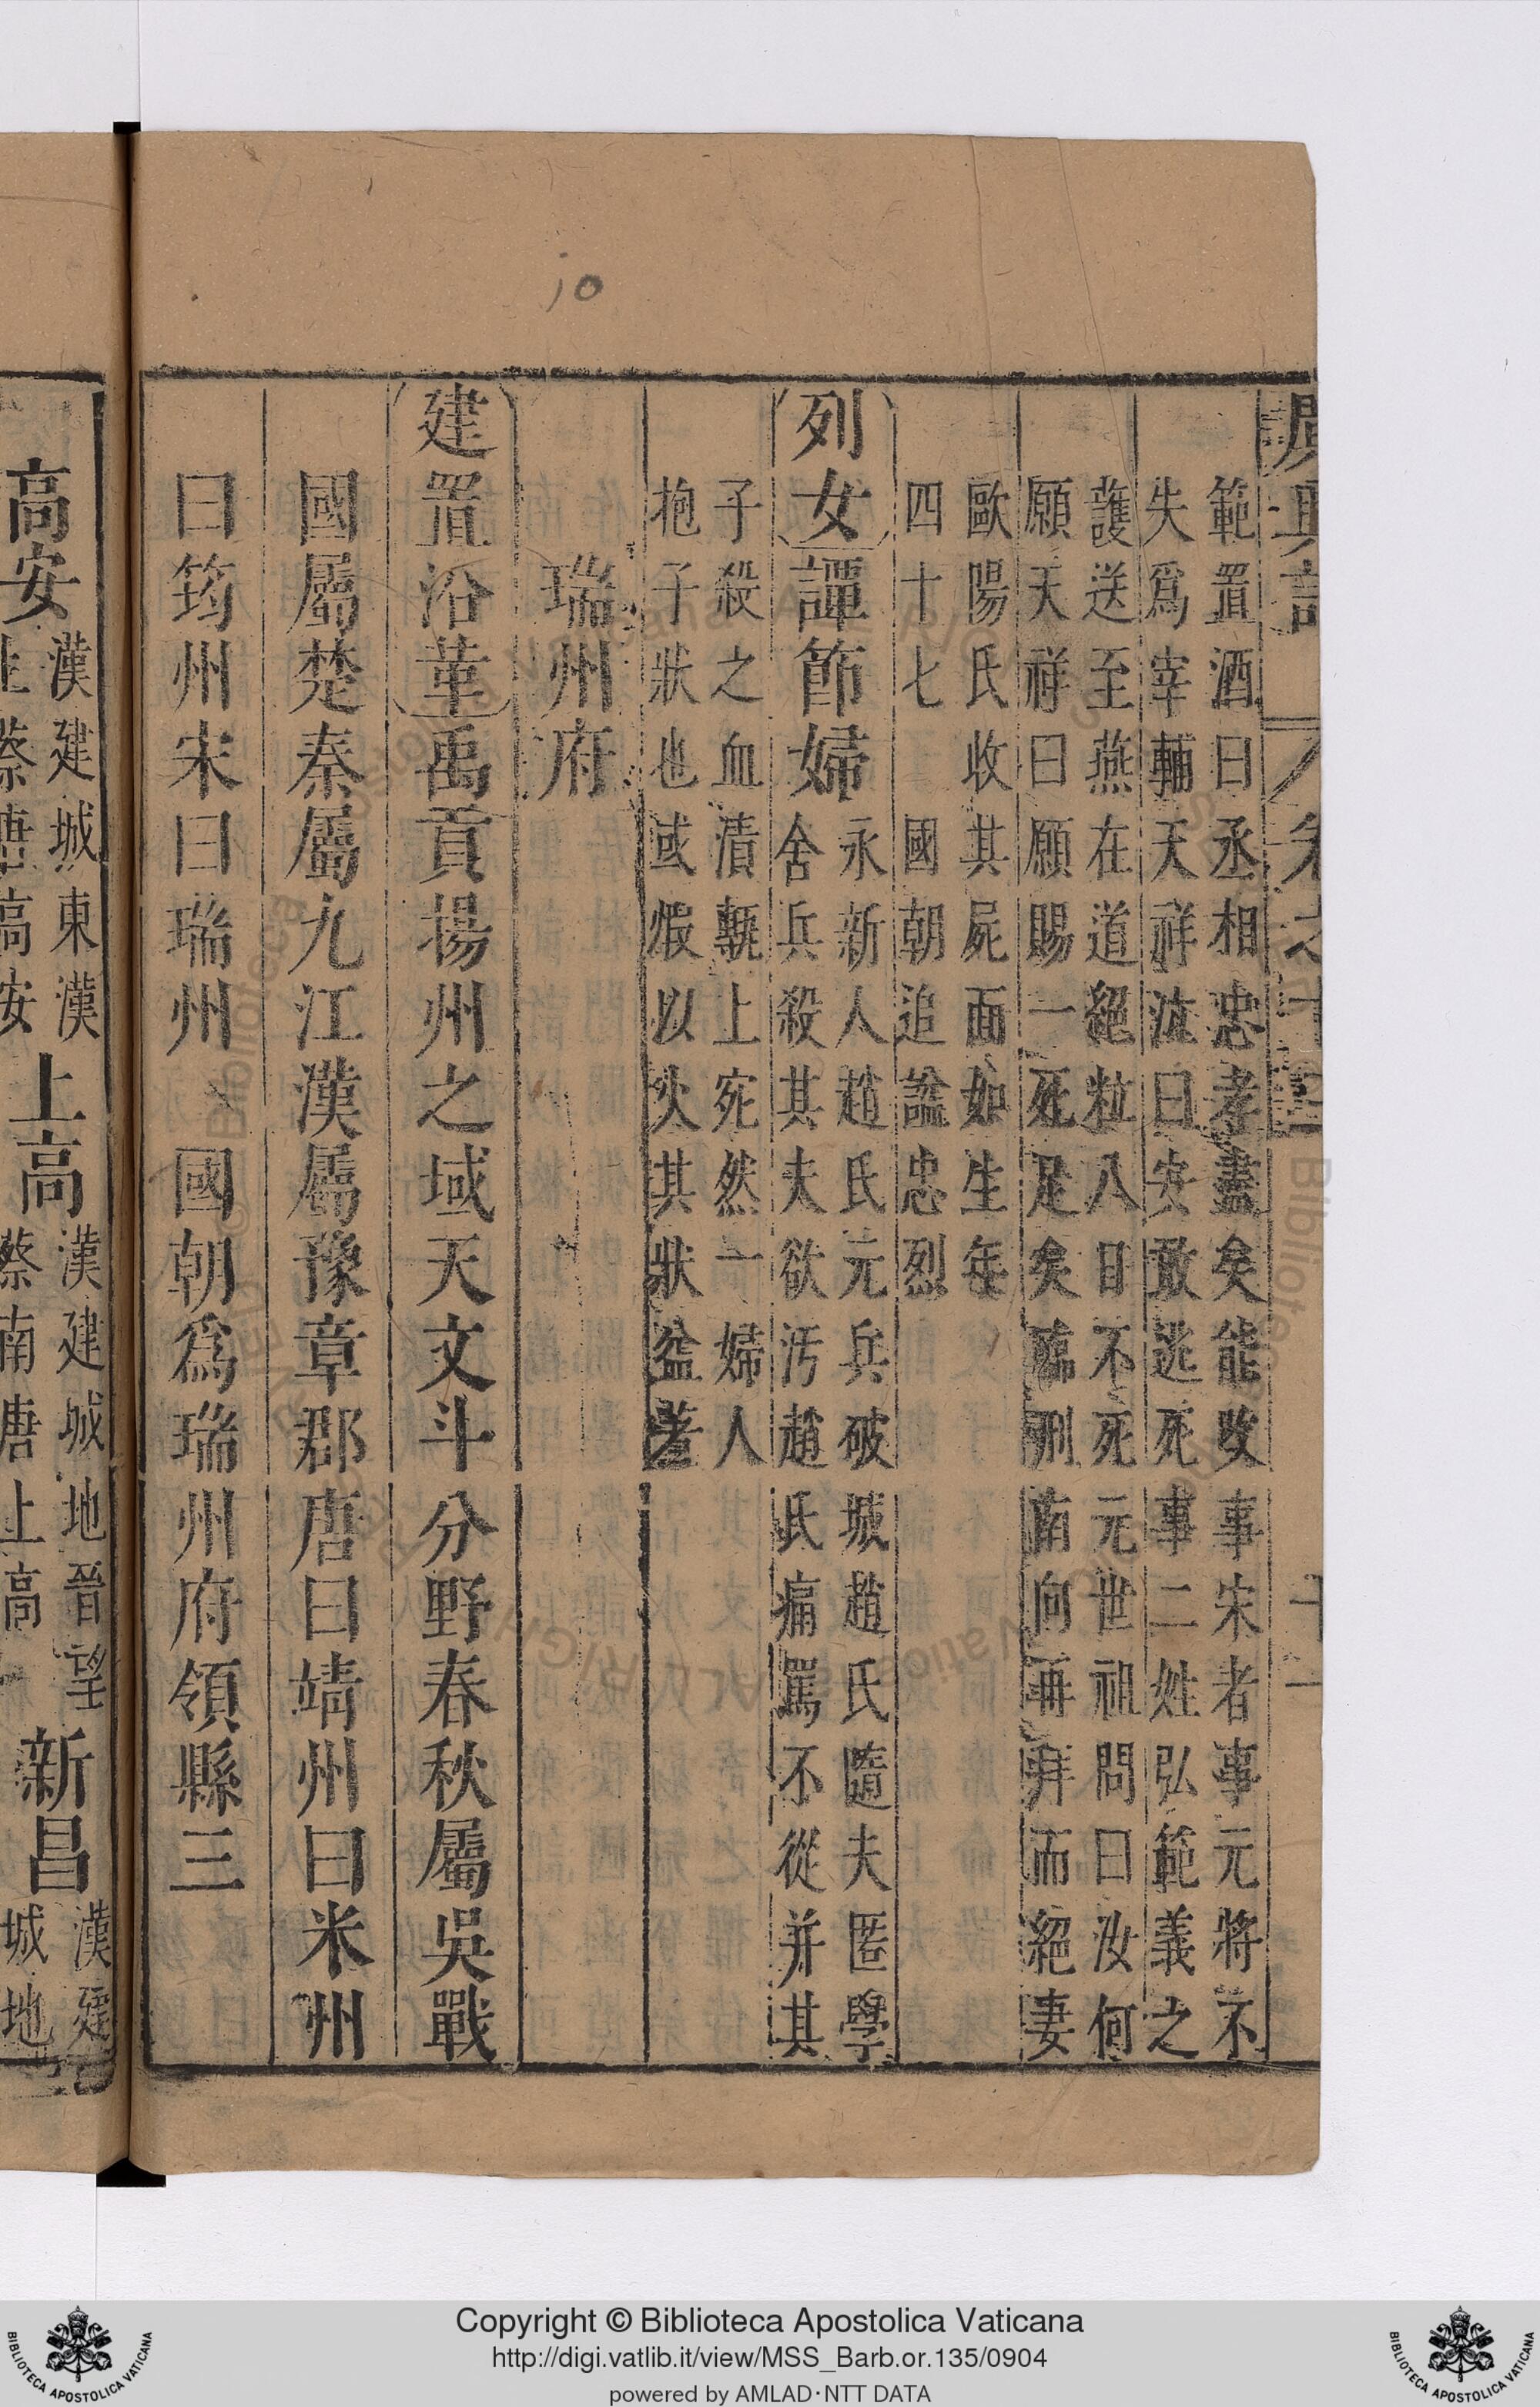 範置酒曰丞相忠孝盡矣能改事宋者事元將不
失為宰輔天祥泫曰安敢逃死事二姓弘範義之
護送至燕在道絕粒八日不死元世祖問曰汝何
願天祥曰願賜一死足矣臨刑南向再拜而絕妻
歐陽氏收其屍面如生年
四十七 國朝追謚忠烈
列女譚節婦
永新人趙氏元兵破城趙氏隨夫匿學
舍兵殺其夫欲汚趙氏痛罵不從并其
子殺之血漬甎上宛然一婦人
抱子狀也或煆以火其狀益著
瑞州府
建置沿革禹貢揚州之域天文斗分野春秋屬吳戰
國屬楚秦屬九江漢屬豫章郡唐曰靖州曰米州
曰筠州宋曰瑞州 國朝為瑞州府領縣三
高安
漢建城東漢
蔡唐高安
上高
漢建城地晉望
蔡南唐上高
新昌
漢建
城地
10
Copyright © Biblioteca Apostolica Vaticana
http://digi.vatlib.it/view/MSS_Barb.or.135/0904
powered by AMLAD·NTT DATA
BIBLIOTECA APOSTOLICA VATICANA
BIBLIOTECA APOSTOLICA VATICANA